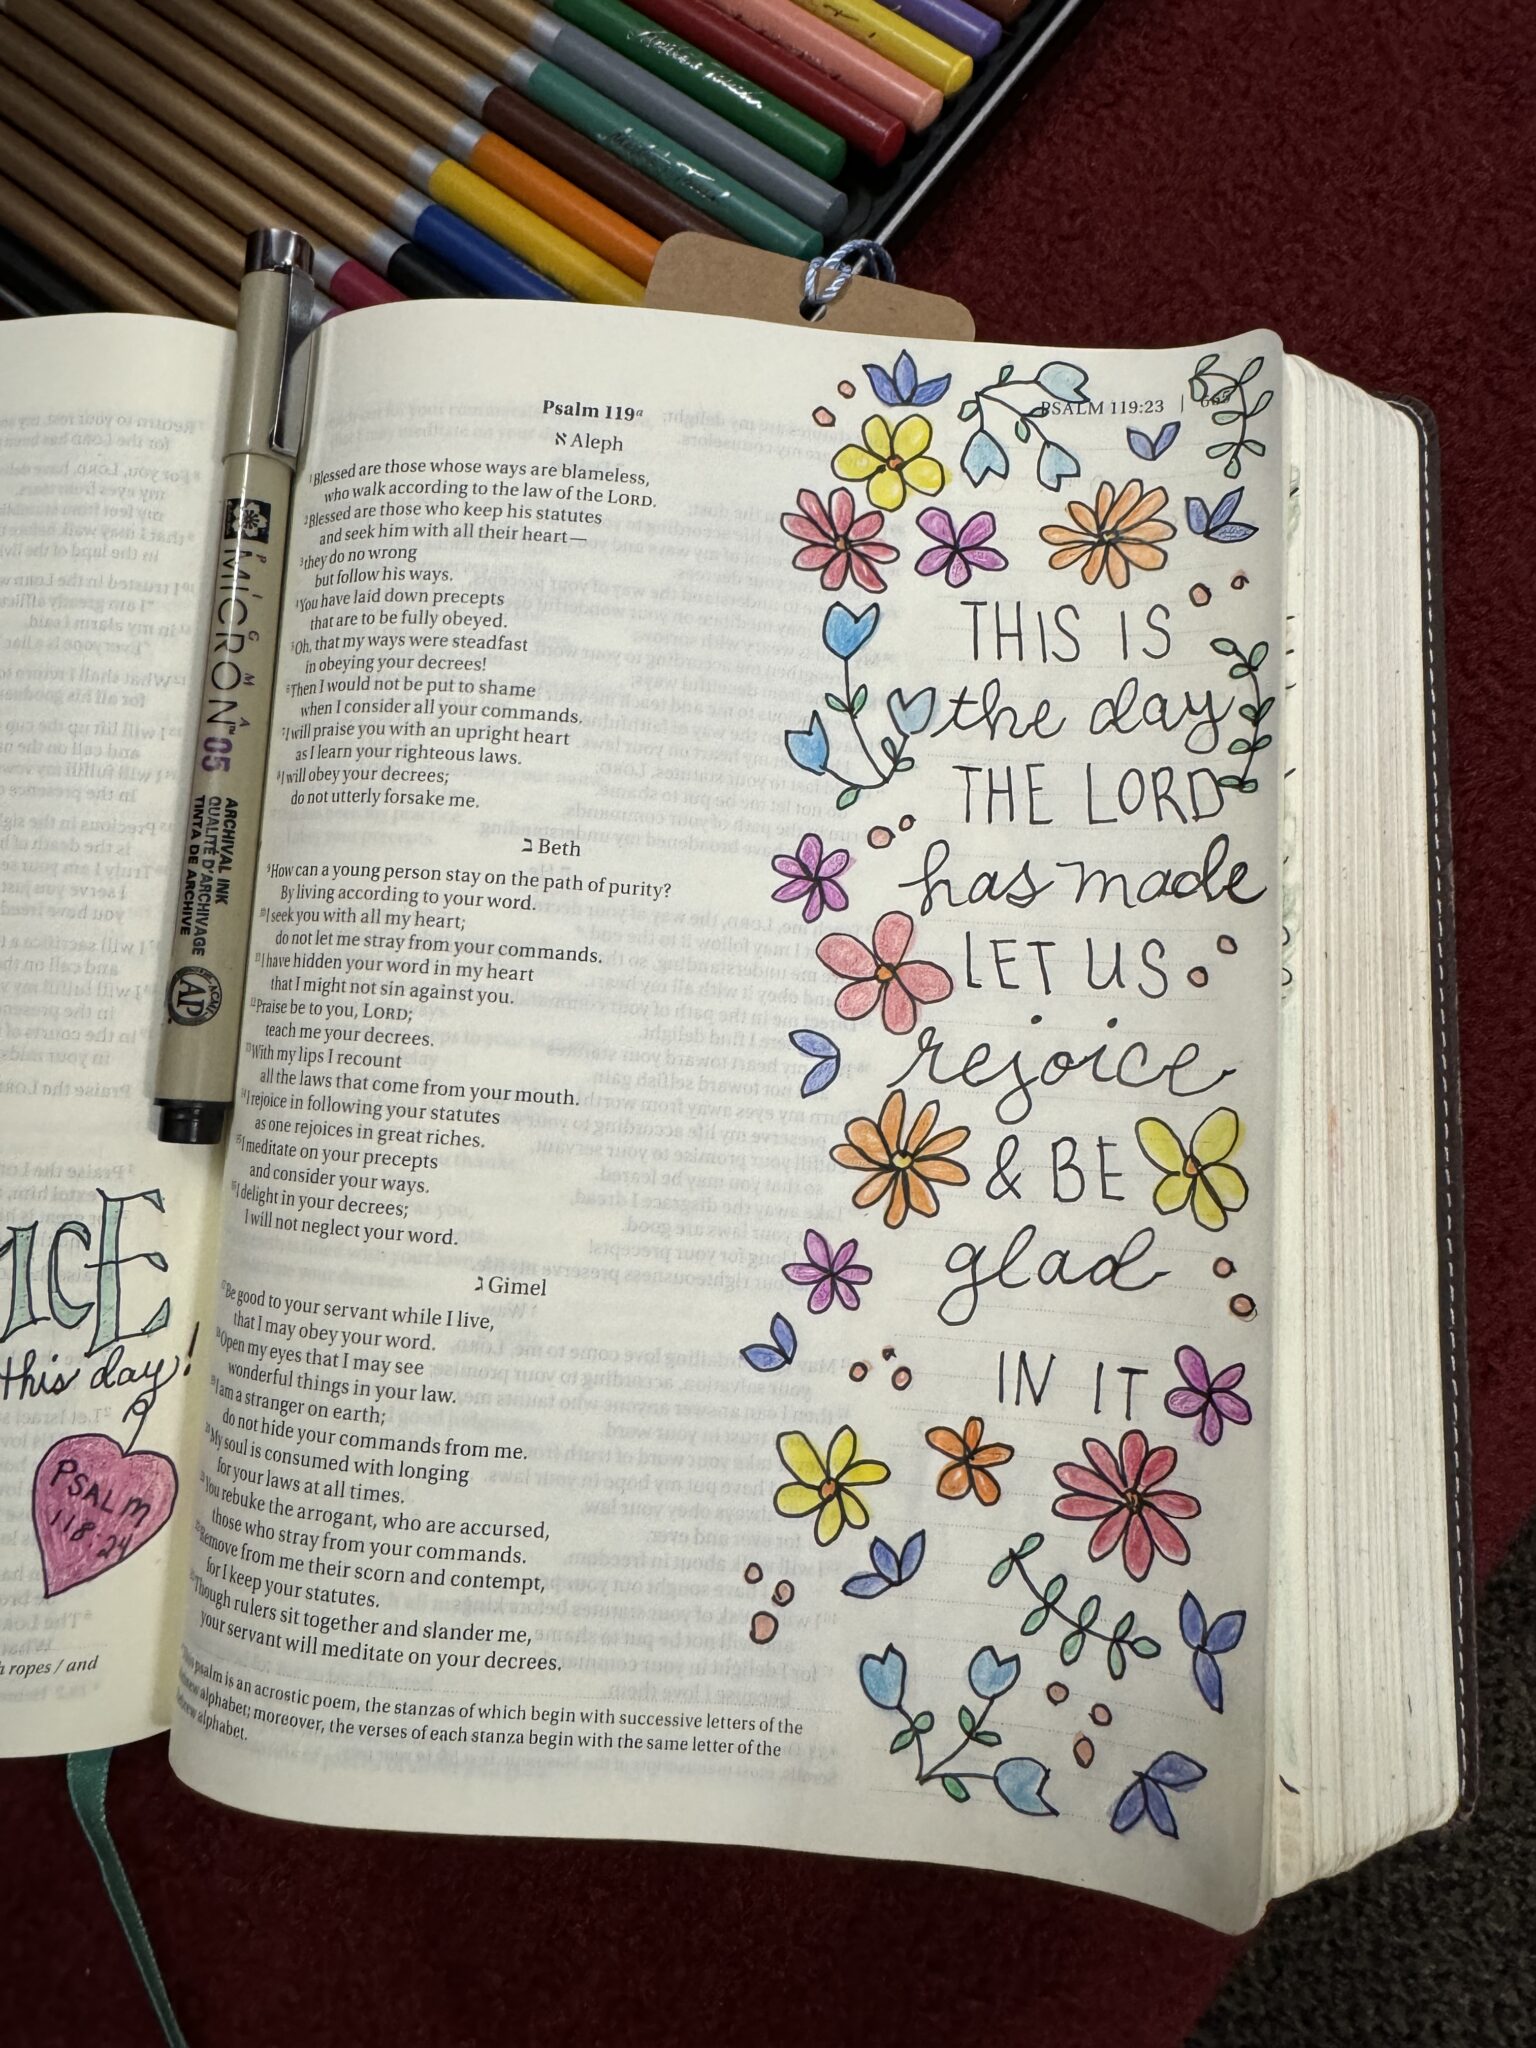 Psalm 119a
א Aleph
1Blessed are those whose ways are blameless,
who walk according to the law of the LORD.
2Blessed are those who keep his statutes
and seek him with all their heart—
3they do no wrong
but follow his ways.
4You have laid down precepts
that are to be fully obeyed.
5Oh, that my ways were steadfast
in obeying your decrees!
6Then I would not be put to shame
when I consider all your commands.
7I will praise you with an upright heart
as I learn your righteous laws.
8I will obey your decrees;
do not utterly forsake me.
ב Beth
9How can a young person stay on the path of purity?
By living according to your word.
10I seek you with all my heart;
do not let me stray from your commands.
11I have hidden your word in my heart
that I might not sin against you.
12Praise be to you, LORD;
teach me your decrees.
13With my lips I recount
all the laws that come from your mouth.
14I rejoice in following your statutes
as one rejoices in great riches.
15I meditate on your precepts
and consider your ways.
16I delight in your decrees;
I will not neglect your word.
ג Gimel
17Be good to your servant while I live,
that I may obey your word.
18Open my eyes that I may see
wonderful things in your law.
19I am a stranger on earth;
do not hide your commands from me.
20My soul is consumed with longing
for your laws at all times.
21You rebuke the arrogant, who are accursed,
those who stray from your commands.
22Remove from me their scorn and contempt,
for I keep your statutes.
23Though rulers sit together and slander me,
your servant will meditate on your decrees.
psalm is an acrostic poem, the stanzas of which begin with successive letters of the
alphabet; moreover, the verses of each stanza begin with the same letter of the
alphabet.
PSALM 119:23 |
THIS IS
the day
THE LORD
has made
LET US
rejoice
& BE
glad
IN IT
this day!
PSALM
118:24
ropes / and
PIGMA
MICRON™ 05
ARCHIVAL INK
QUALITÉ D'ARCHIVAGE
TINTA DE ARCHIVE
AP